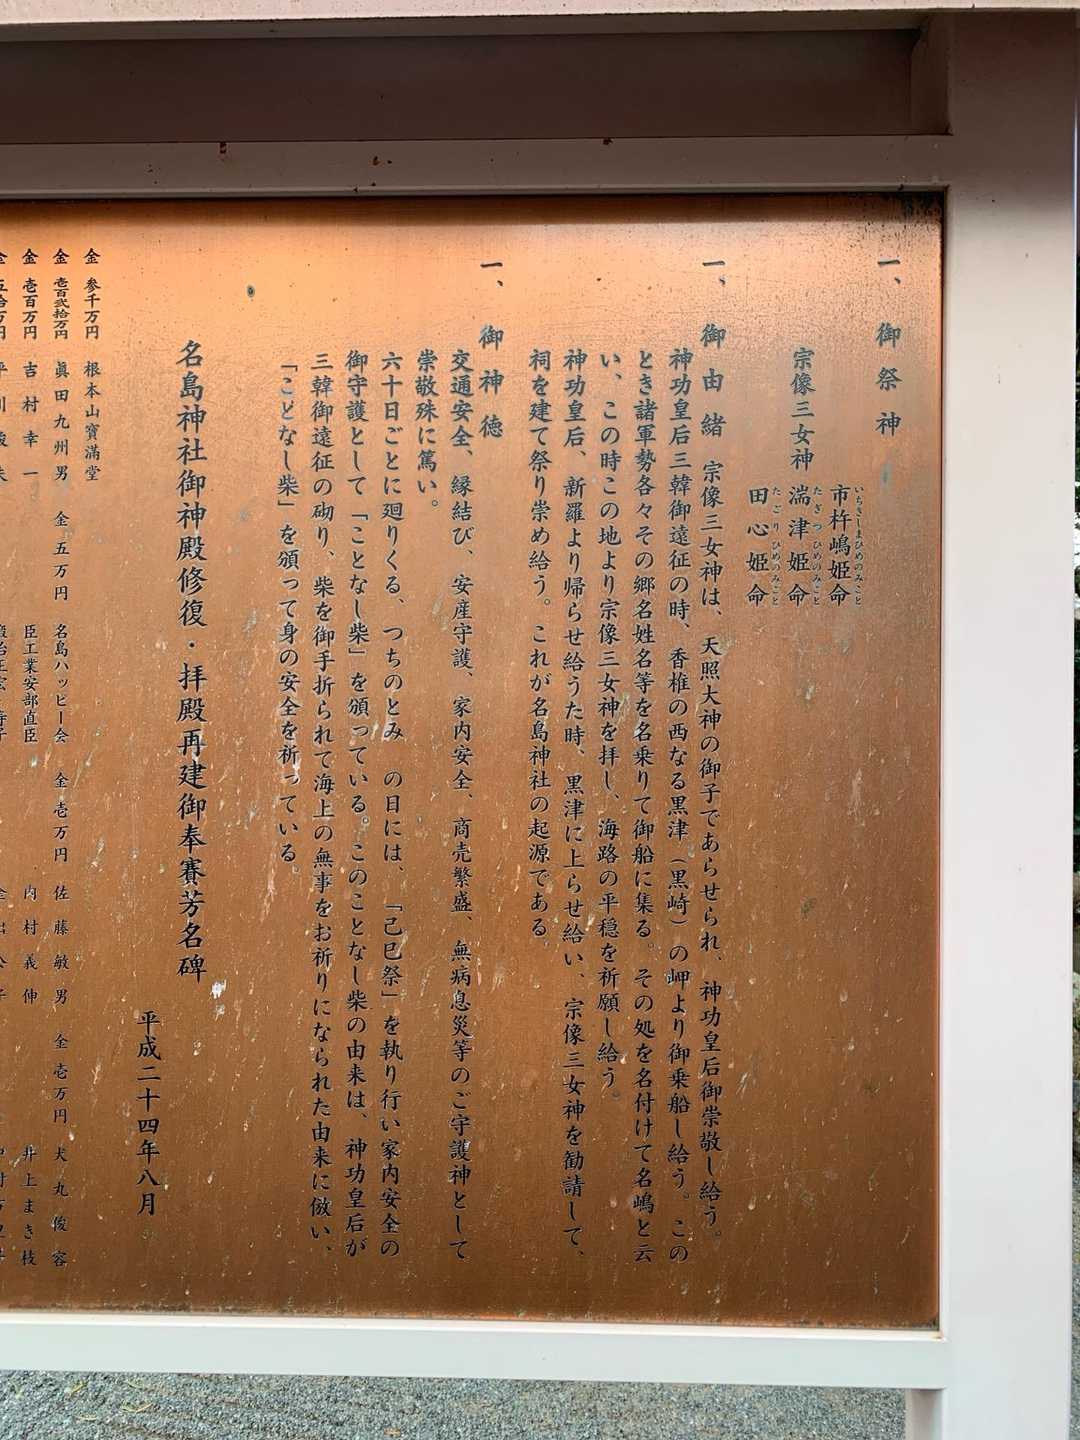 一、御祭神
宗像三女神
市杵嶋姫命
いちきしまひめのみこと
湍津姫命
たぎつひめのみこと
田心姫命
たごりひめのみこと
一、御由緒 宗像三女神は、天照大神の御子であらせられ、神功皇后御崇敬し給う。
神功皇后三韓御遠征の時、香椎の西なる黒津(黒崎)の岬より御乗船し給う。この
とき諸軍勢各々その郷名姓名等を名乗りて御船に集る。その処を名付けて名嶋と云
い、この時この地より宗像三女神を拝し、海路の平穏を祈願し給う。
神功皇后、新羅より帰らせ給うた時、黒津に上らせ給い、宗像三女神を勧請して、
祠を建て祭り崇め給う。これが名島神社の起源である。
一、御神徳
交通安全、縁結び、安産守護、家内安全、商売繁盛、無病息災等のご守護神として
崇敬殊に篤い。
六十日ごとに廻りくる、つちのとみ の日には、「己巳祭」を執り行い家内安全の
御守護として「ことなし柴」を頒っている。このことなし柴の由来は、神功皇后が
三韓御遠征の砌り、柴を御手折られて海上の無事をお祈りになられた由来に倣い、
「ことなし柴」を頒って身の安全を祈っている。
名島神社御神殿修復・拝殿再建御奉賽芳名碑
平成二十四年八月
金 参千万円 根本山寶満堂
金 壱百弐拾万円 眞田九州男 金 五万円 名島ハッピー会 金 壱万円 佐藤敏男 金 壱万円 犬丸俊容
金 壱百万円 吉村幸一 臣工業安部直臣 内村義伸 井上まき枝